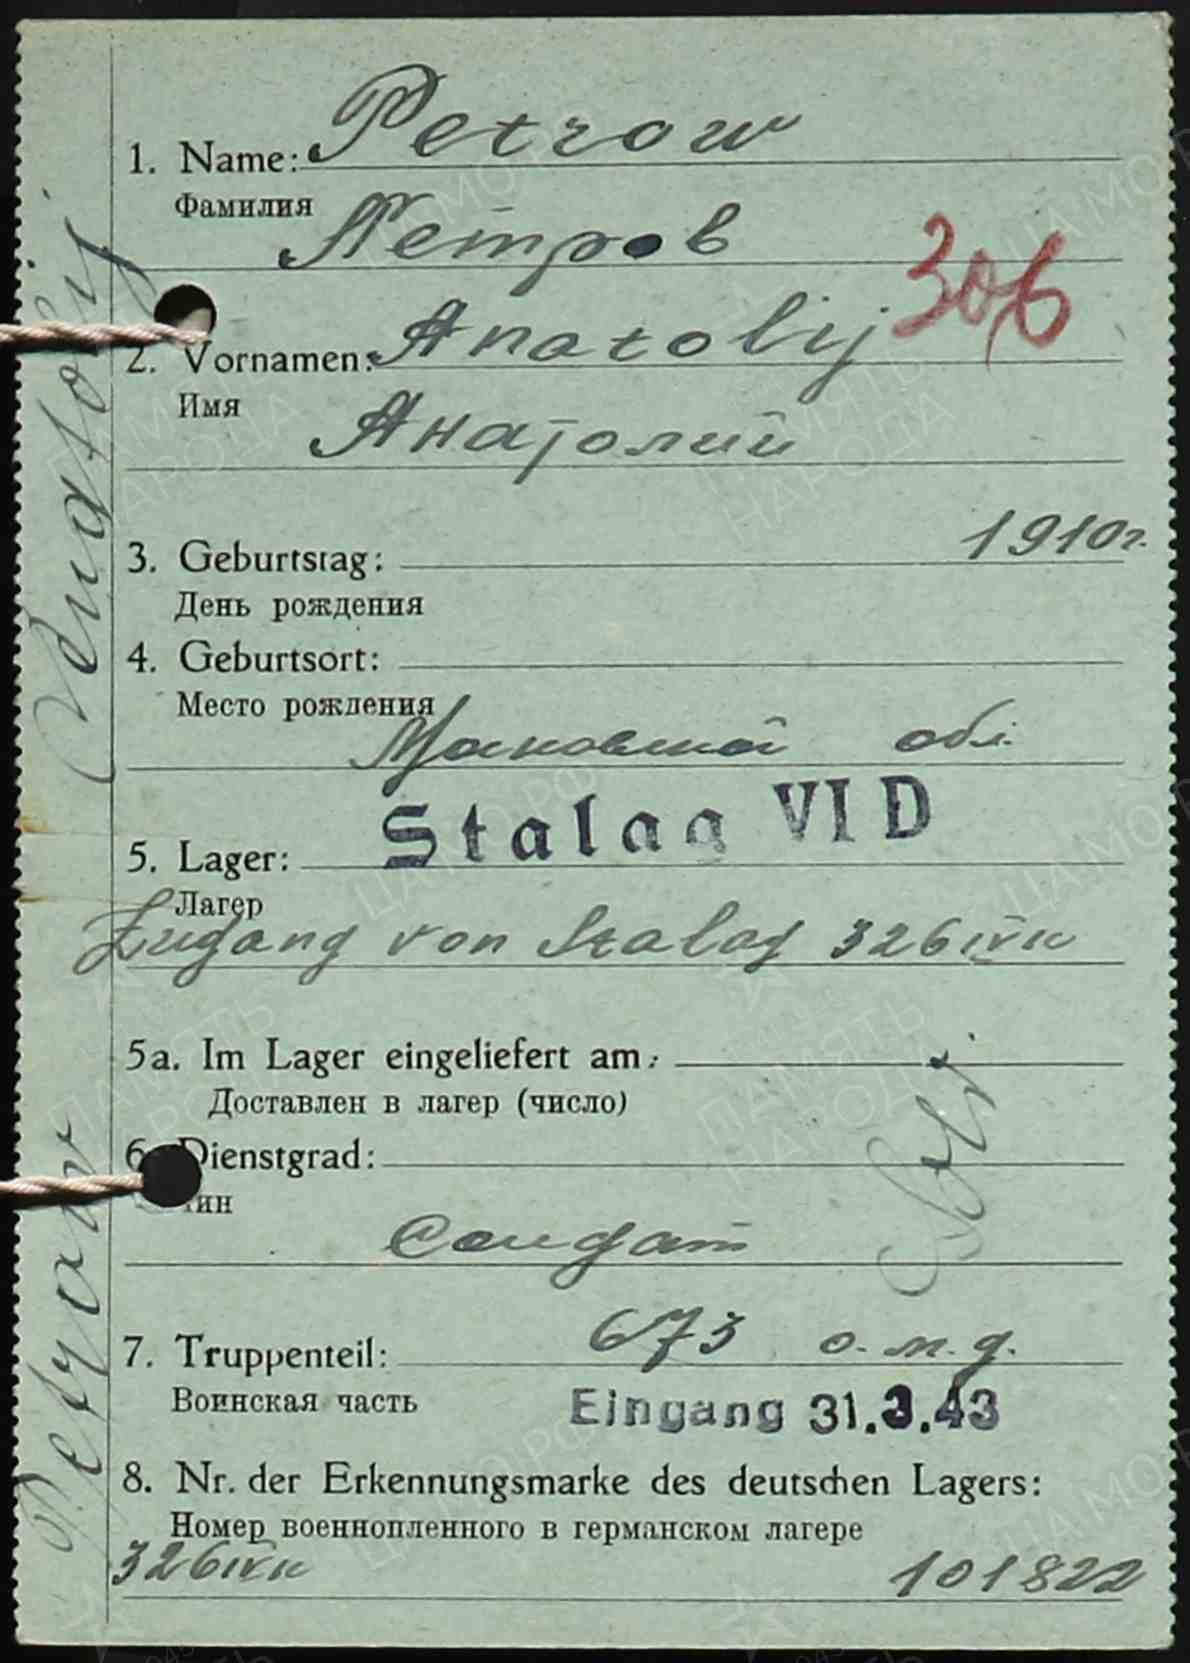 1. Name: Petrow
Фамилия
Петров
306
2. Vornamen: Anatolij
Имя
Анатолий
3. Geburtstag: 1910г.
День рождения
4. Geburtsort:
Место рождения
Московской обл.
5. Lager: Stalag VI D
Лагер
Zugang von Stalag 326 VI K
5a. Im Lager eingeliefert am:
Доставлен в лагер (число)
6. Dienstgrad:
Чин
Солдат
7. Truppenteil: 673 о.м.д.
Воинская часть
Eingang 31.3.43
8. Nr. der Erkennungsmarke des deutschen Lagers:
Номер военнопленного в германском лагере
326 VI K 101822
Petrow Anatolij